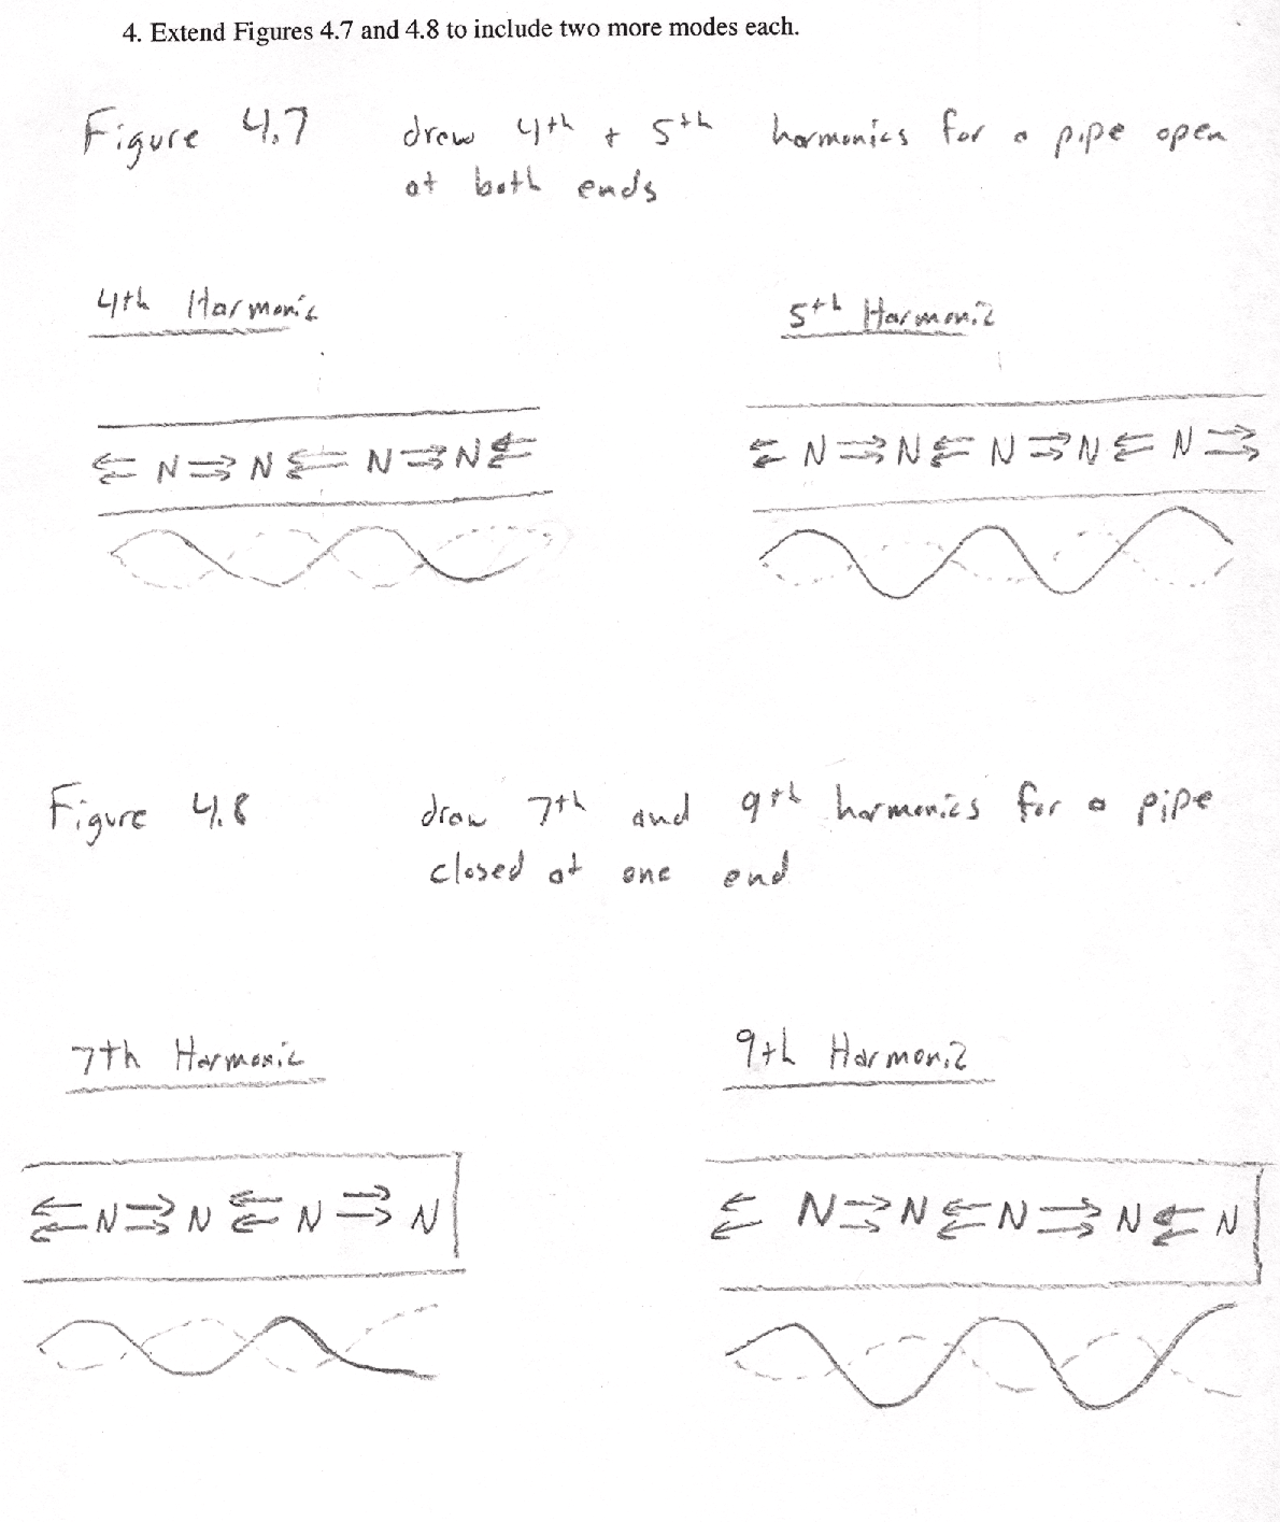 4. Extend Figures 4.7 and 4.8 to include two more modes each.
Figure 4.7 draw 4th + 5th harmonics for a pipe open
at both ends
4th Harmonic
5th Harmonic
⇇ N ⇉ N ⇇ N ⇉ N ⇇
⇇ N ⇉ N ⇇ N ⇉ N ⇇ N ⇉
Figure 4.8 draw 7th and 9th harmonics for a pipe
closed at one end
7th Harmonic
9th Harmonic
⇇ N ⇉ N ⇇ N ⇉ N
⇇ N ⇉ N ⇇ N ⇉ N ⇇ N